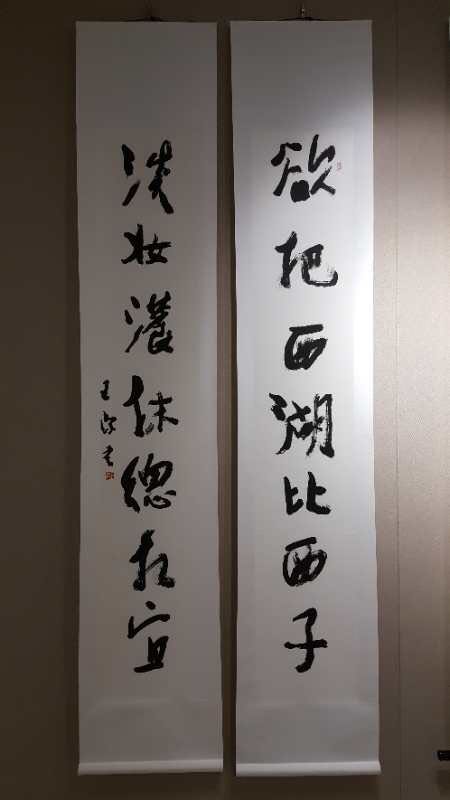 欲把西湖比西子
淡妆濃抹總相宜
王